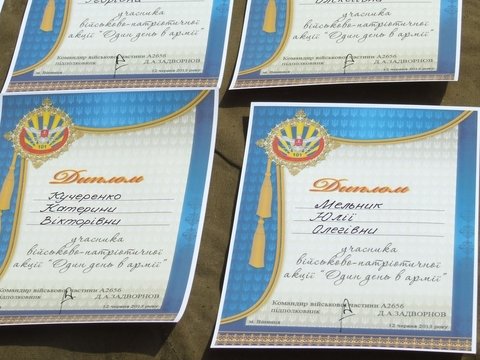 учасника
військово-патріотичної
акції "Один день в армії"
Командир військової частини А2656
підполковник Д.А.ЗАДВОРНОВ
м. Вінниця 12 червня 2013 року
учасника
військово-патріотичної
акції "Один день в армії"
Командир військової частини А2656
підполковник Д.А.ЗАДВОРНОВ
м. Вінниця 12 червня 2013 року
101
Диплом
Кучеренко
Катерини
Вікторівни
учасника
військово-патріотичної
акції "Один день в армії"
Командир військової частини А2656
підполковник Д.А.ЗАДВОРНОВ
м. Вінниця 12 червня 2013 року
101
Диплом
Мельник
Юлії
Олегівни
учасника
військово-патріотичної
акції "Один день в армії"
Командир військової частини А2656
підполковник Д.А.ЗАДВОРНОВ
м. Вінниця 12 червня 2013 року